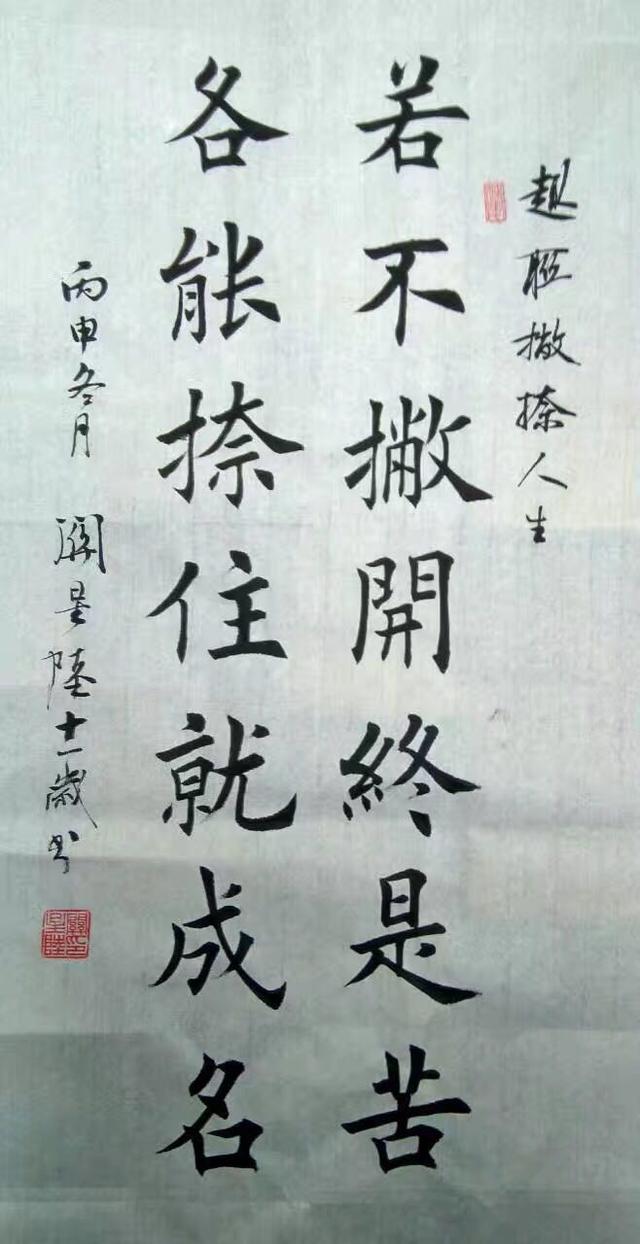 趣聯撇捺人生
若不撇開終是苦
各能捺住就成名
丙申冬月 關陸十一歲书